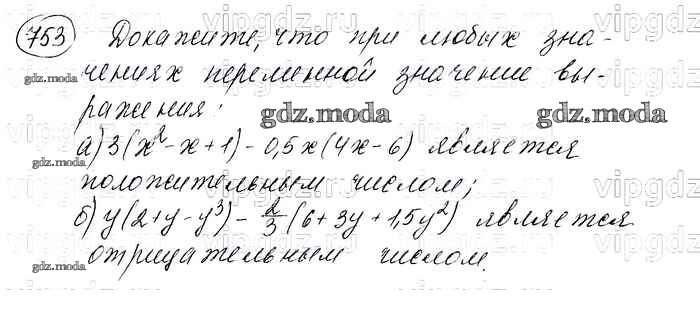 753 Докажите, что при любых зна-
чениях переменной значение вы-
ражения:
а) 3(x²-x+1)-0,5x(4x-6) является
положительным числом;
б) y(2+y-y³)-2/3(6+3y+1,5y²) является
отрицательным числом.
vipgdz.ru
gdz.moda